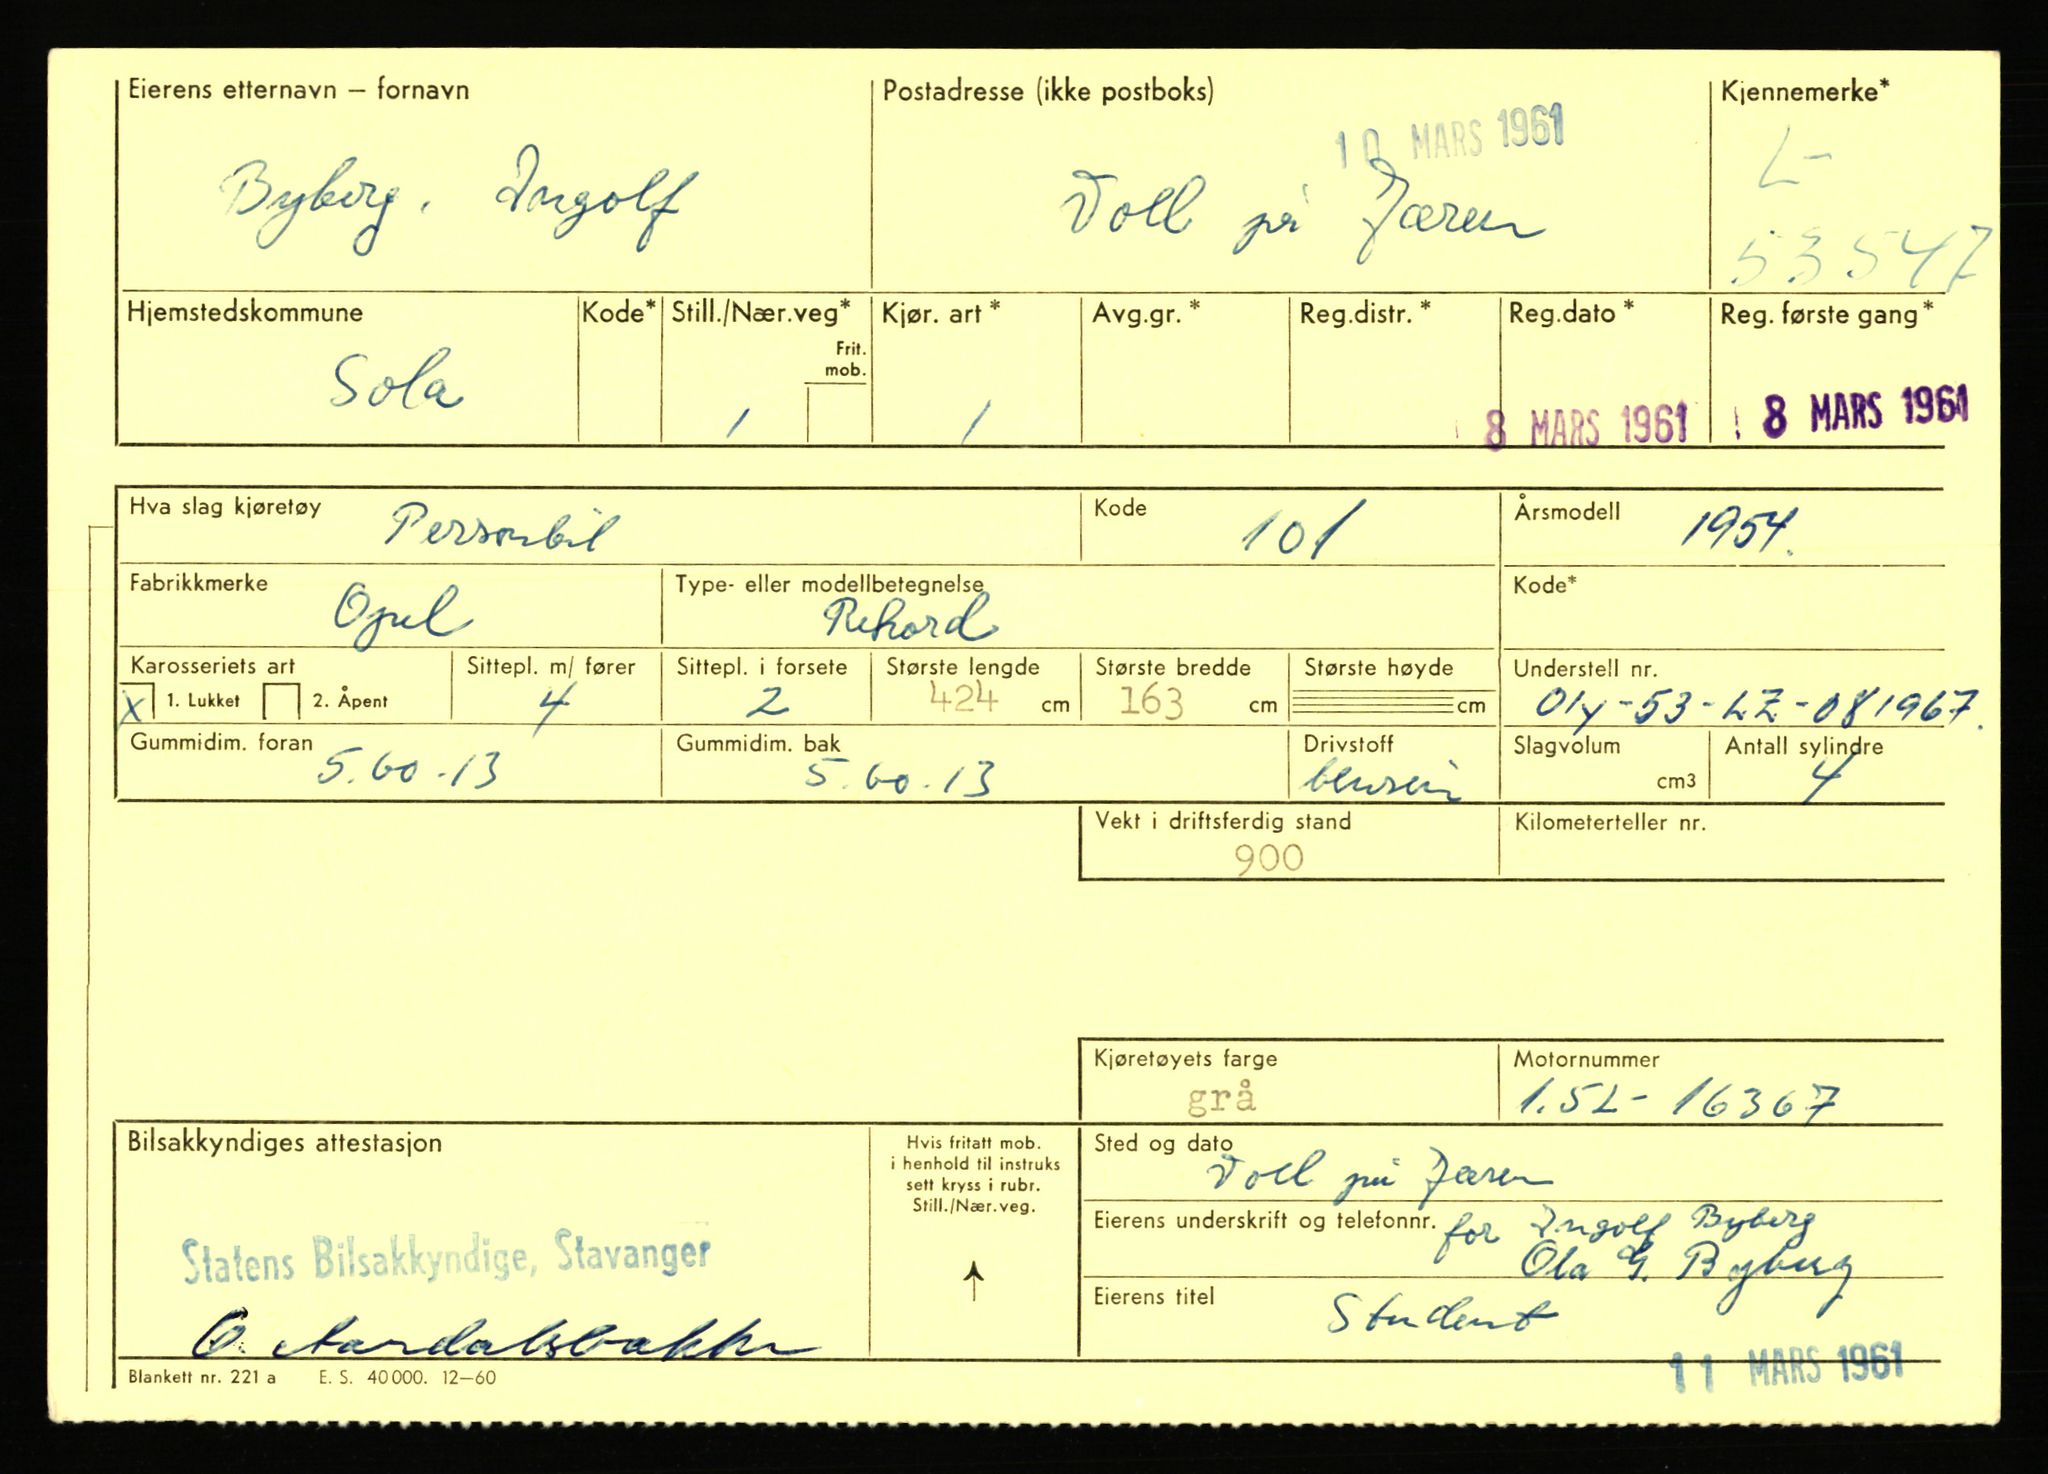 Eierens etternavn – fornavn
Postadresse (ikke postboks)
Kjennemerke*
10 MARS 1961
Byberg, Ingolf
Voll på Jæren
L-
53547
Hjemstedskommune
Kode*
Still./Nær.veg*
Frit. mob.
Kjør. art *
Avg.gr. *
Reg.distr. *
Reg.dato *
Reg. første gang*
Sola
1
1
8 MARS 1961
8 MARS 1961
Hva slag kjøretøy Personbil
Kode 101
Årsmodell 1954.
Fabrikkmerke Opel
Type- eller modellbetegnelse Rekord
Kode*
Karosseriets art
X 1. Lukket 2. Åpent
Sittepl. m/ fører 4
Sittepl. i forsete 2
Største lengde 424 cm
Største bredde 163 cm
Største høyde cm
Understell nr.
Oly-53-LZ-081967.
Gummidim. foran 5.60.13
Gummidim. bak 5.60.13
Drivstoff bensin
Slagvolum cm3
Antall sylindre 4
Vekt i driftsferdig stand 900
Kilometerteller nr.
Kjøretøyets farge grå
Motornummer
1.5L- 16367
Bilsakkyndiges attestasjon
Statens Bilsakkyndige, Stavanger
O. Aardalsbakke
Hvis fritatt mob.
i henhold til instruks
sett kryss i rubr.
Still./Nær.veg.
↑
Sted og dato Voll på Jæren
Eierens underskrift og telefonnr. for Ingolf Byberg
Ola G. Byberg
Eierens titel Student
11 MARS 1961
Blankett nr. 221 a E. S. 40 000. 12–60